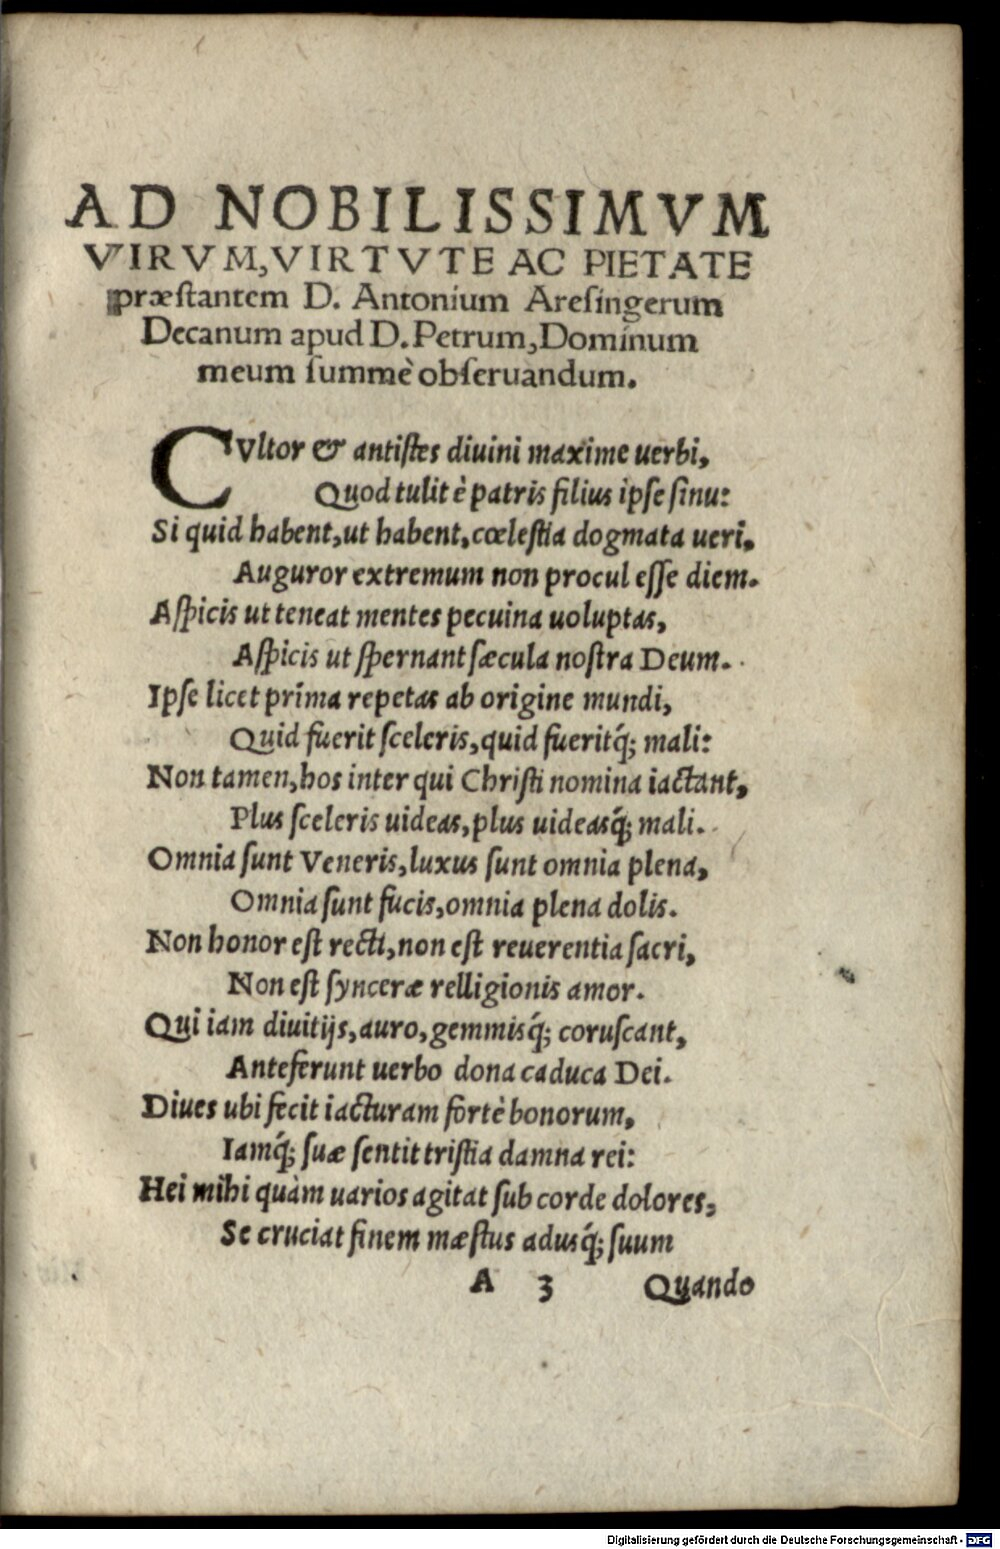 AD NOBILISSIMVM
VIRVM, VIRTVTE AC PIETATE
præſtantem D. Antonium Areſingerum
Decanum apud D. Petrum, Dominum
meum ſummè obſeruandum.
CVltor & antiſtes diuini maxime uerbi,
Quod tulit è patris filius ipſe ſinu:
Si quid habent, ut habent, cœleſtia dogmata ueri,
Auguror extremum non procul eſſe diem.
Aſpicis ut teneat mentes pecuina uoluptas,
Aſpicis ut ſpernant ſæcula noſtra Deum.
Ipſe licet prima repetas ab origine mundi,
Quid fuerit ſceleris, quid fueritq́; mali:
Non tamen, hos inter qui Chriſti nomina iactant,
Plus ſceleris uideas, plus uideasq́; mali.
Omnia ſunt Veneris, luxus ſunt omnia plena,
Omnia ſunt fucis, omnia plena dolis.
Non honor eſt recti, non eſt reuerentia ſacri,
Non eſt ſynceræ relligionis amor.
Qui iam diuitijs, auro, gemmisq́; coruſcant,
Anteferunt uerbo dona caduca Dei.
Diues ubi fecit iacturam fortè bonorum,
Iamq́; ſuæ ſentit triſtia damna rei:
Hei mihi quàm uarios agitat ſub corde dolores,
Se cruciat finem mæſtus adusq́; ſuum
A 3 Quando
Digitalisierung gefördert durch die Deutsche Forschungsgemeinschaft - DFG